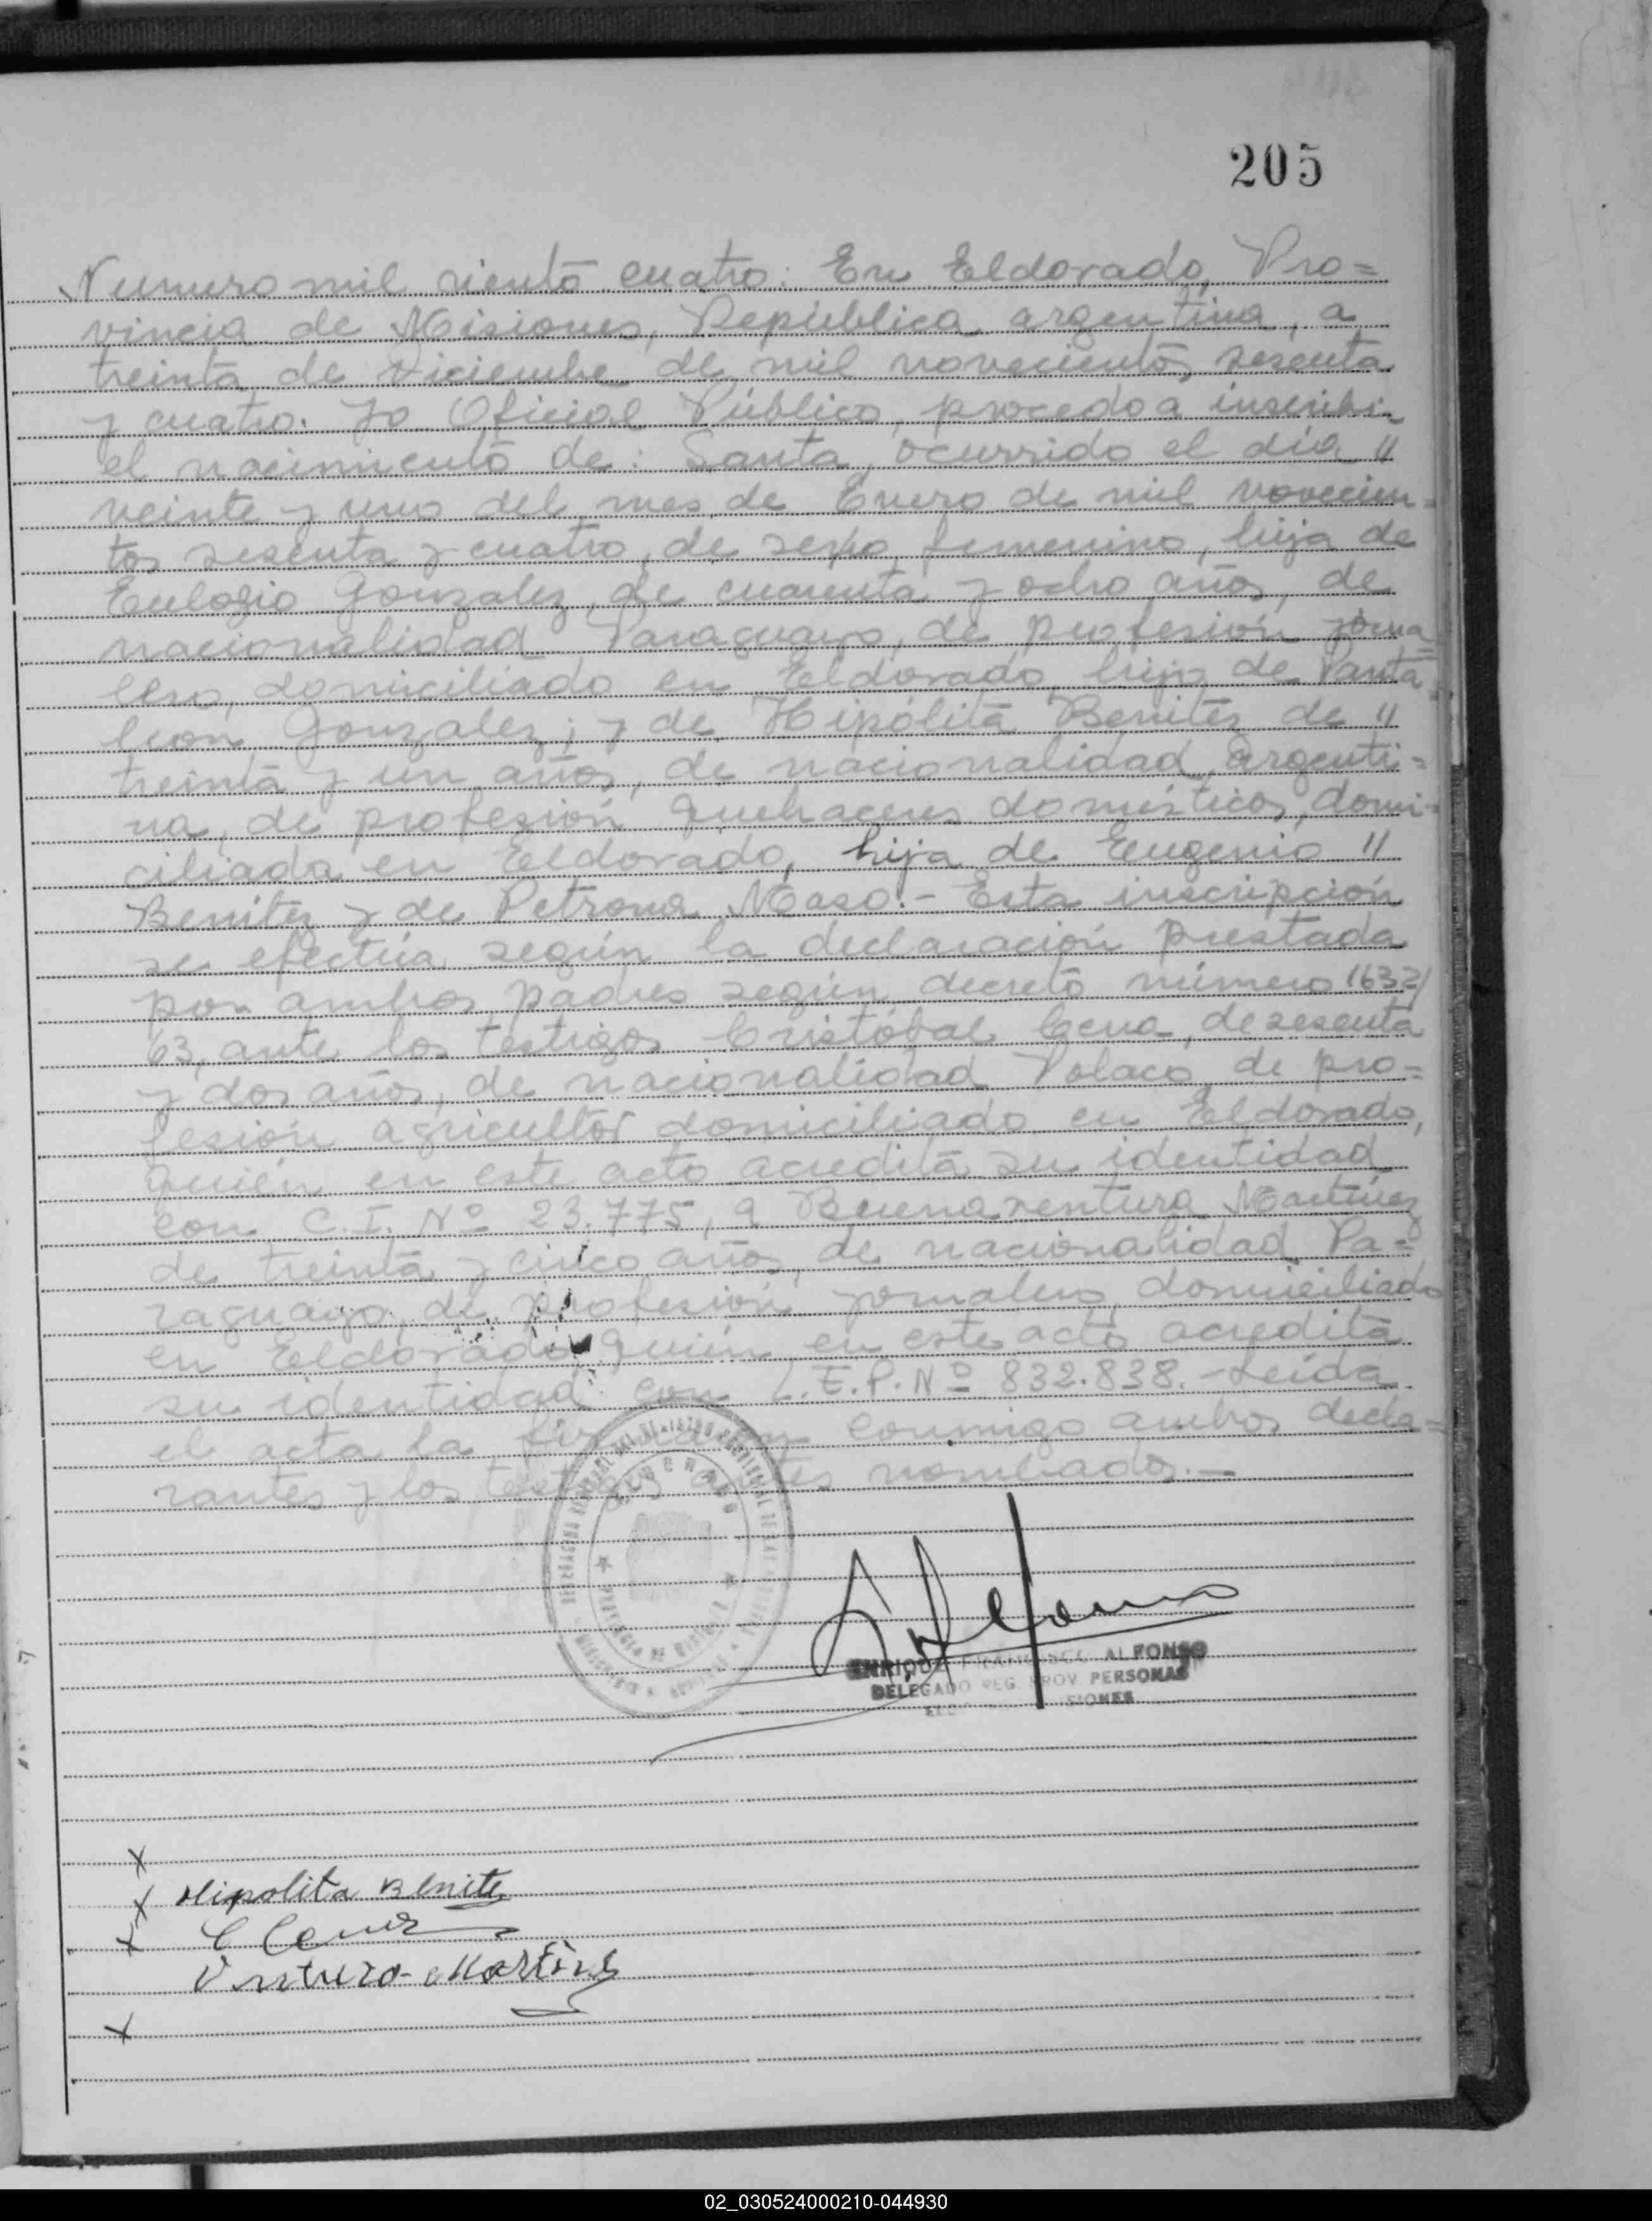 205
Numero mil ciento cuatro: En Eldorado, Pro=
vincia de Misiones, República argentina, a
treinta de Diciembre de mil novecientos sesenta
y cuatro. Yo Oficial Público, procedo a inscribir
el nacimiento de: Santa, ocurrido el día "
veinte y uno del mes de Enero de mil novecien=
tos sesenta y cuatro, de sexo femenino, hija de
Eulogio Gonzalez, de cuarenta y ocho años, de
nacionalidad Paraguayo, de profesión jorna
lero, domiciliado en Eldorado, hijo de Panta=
leon Gonzalez; y de Hipólita Benitez de "
treinta y un años, de nacionalidad Argenti=
na, de profesión quehaceres domésticos, domi=
ciliada en Eldorado, hija de Eugenio "
Benitez y de Petrona Maso.- Esta inscripción
se efectúa según la declaración prestada
por ambos padres según decreto número 1632/
63, ante los testigos Cristóbal Cena, de sesenta
y dos años, de nacionalidad Polaco, de pro=
fesión agricultor domiciliado en Eldorado,
quién en este acto acredita su identidad
con C.I. Nº 23.775, a Buenaventura Martinez
de treinta y cinco años, de nacionalidad Pa=
raguayo, de profesión jornalero, domiciliado
en Eldorado, quién en este acto acredita
su identidad con L.E.P. Nº 832.838.- Leída
el acta la firman conmigo ambos decla=
rantes y los testigos antes nombrados.-
ELDORADO
PROVINCIA DE MISIONES
ENRIQUE FRANCISCO ALFONSO
DELEGADO REG. PROV. PERSONAS
SIONES
x
x Hipolita Benite
x C Cena
Ventura Martinez
x
02_030524000210-044930